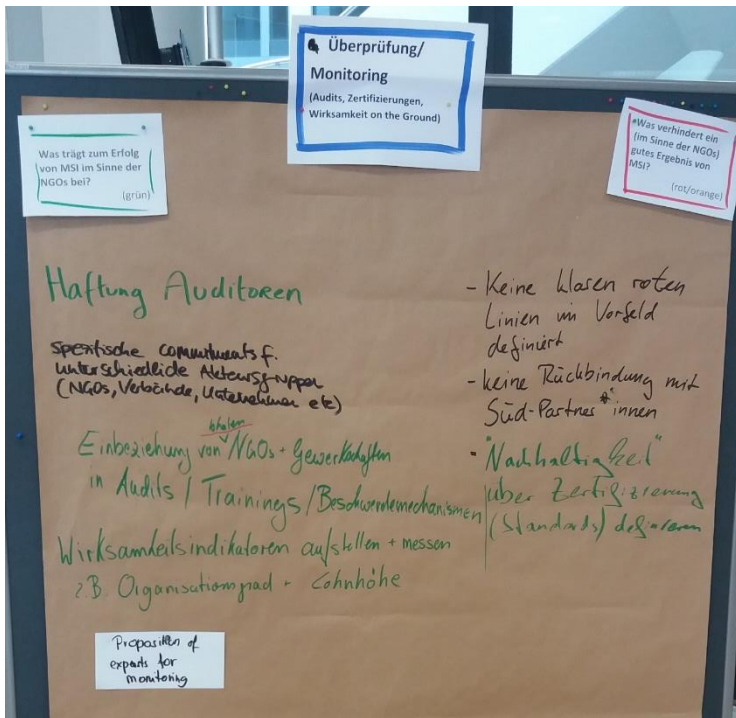 Überprüfung/
Monitoring
(Audits, Zertifizierungen,
Wirksamkeit on the Ground)
Was trägt zum Erfolg
von MSI im Sinne der
NGOs bei?
(grün)
Was verhindert ein
(im Sinne der NGOs)
gutes Ergebnis von
MSI?
(rot/orange)
Haftung Auditoren
Spezifische commitments f.
unterschiedliche Akteursgruppen
(NGOs, Verbände, Unternehmen etc)
lokalen
Einbeziehung von NGOs + Gewerkschaften
in Audits / Trainings / Beschwerdemechanismen
Wirksamkeitsindikatoren aufstellen + messen
z.B. Organisationsgrad + Lohnhöhe
Proposition of
experts for
monitoring
- Keine klaren roten
Linien im Vorfeld
definiert
- keine Rückbindung mit
Süd-Partner*innen
- "Nachhaltigkeit"
über Zertifizierung
(Standards) definieren